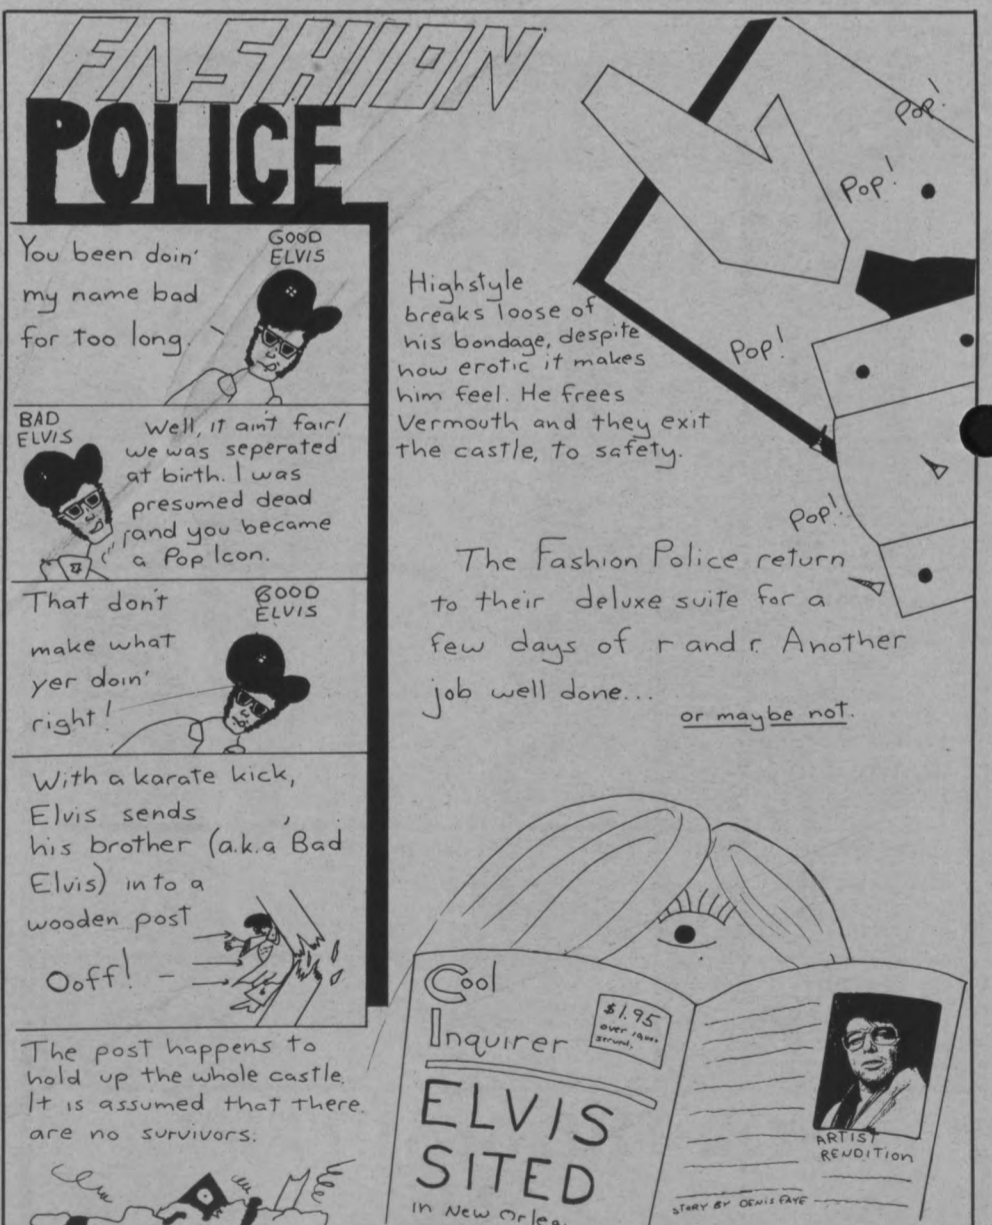 FASHION
POLICE
You been doin'
my name bad
for too long.
GOOD
ELVIS
BAD
ELVIS
Well, it ain't fair!
we was seperated
at birth. I was
presumed dead
and you became
a Pop Icon.
That don't
make what
yer doin'
right!
GOOD
ELVIS
With a karate kick,
Elvis sends
his brother (a.k.a Bad
Elvis) into a
wooden post
Ooff!
The post happens to
hold up the whole castle.
It is assumed that there
are no survivors.
Pop!
Pop!
Pop!
Pop!
Highstyle
breaks loose of
his bondage, despite
how erotic it makes
him feel. He frees
Vermouth and they exit
the castle, to safety.
The Fashion Police return
to their deluxe suite for a
few days of r and r. Another
job well done...
or maybe not.
Cool
Inquirer
$1.95
over
ELVIS
SITED
in New
ARTIST
RENDITION
STORY BY DENIS FAYE